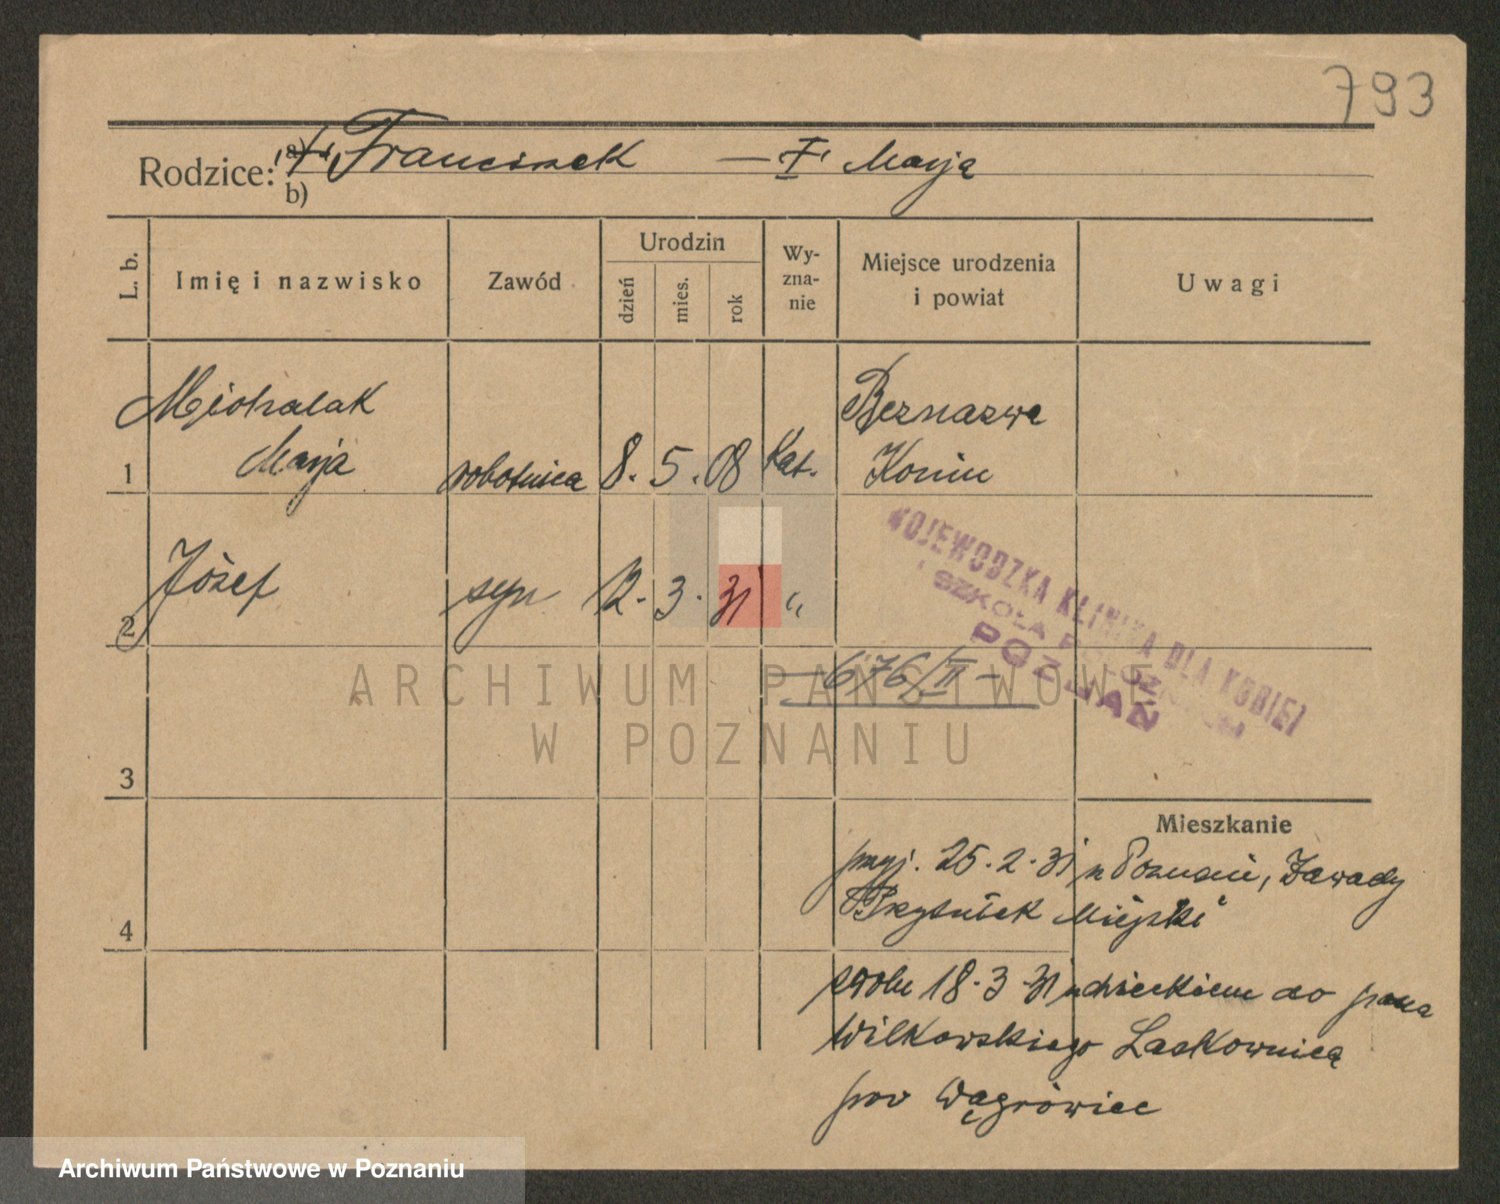 793
Rodzice: a) † Franciszek — † Marja
b)
L. b. Imię i nazwisko Zawód Urodzin dzień mies. rok Wy-zna-nie Miejsce urodzenia i powiat Uwagi
Michalak Beznazwa
1 Marja robotnica 8. 5. 08 Kat. Konin
2 Józef syn 12. 3. 31 "
WOJEWODZKA KLINIKA DLA KOBIET
i SZKOŁA POŁOŻNYCH
POZNAŃ
— 676/II —
ARCHIWUM PAŃSTWOWE
W POZNANIU
3
Mieszkanie
przyj. 25.2.31 z Poznania, Zawady
4 Przytułek Miejski
18.3.31 z dzieckiem do pana
Wilkowskiego Laskownica
pow Wągrówiec
Archiwum Państwowe w Poznaniu